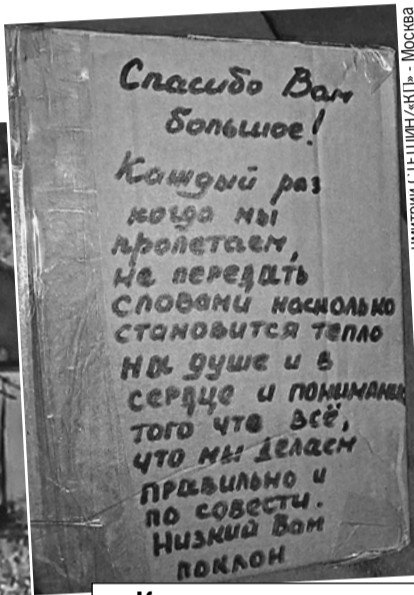 Спасибо Вам
большое!
Каждый раз
когда мы
пролетаем,
не передать
словами насколько
становится тепло
на душе и в
сердце и понимание
того что всё,
что мы делаем
правильно и
по совести.
Низкий Вам
поклон
«КП» - Москва